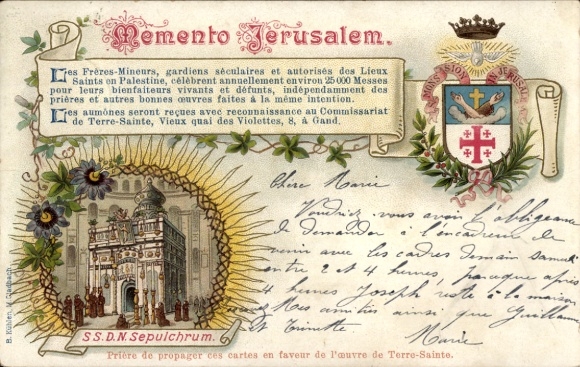 Memento Jerusalem.
Les Frères-Mineurs, gardiens séculaires et autorisés des Lieux
Saints en Palestine, célèbrent annuellement environ 25000 Messes
pour leurs bienfaiteurs vivants et défunts, indépendamment des
prières et autres bonnes œuvres faites à la même intention.
Les aumônes seront reçues avec reconnaissance au Commissariat
de Terre-Sainte, Vieux quai des Violettes, 8, à Gand.
Chere Marie
Voudriez vous avoir l'obligeance
de demander à l'encadreur de
venir avec les cadres demain samedi
entre 2 et 4 heures, parce que après
4 heures Joseph est à la maison
Mes amitiés ainsi que Guillaume
et
Marie
S.S.D.N. Sepulchrum.
B. Kühlen, M. Gladbach.
Prière de propager ces cartes en faveur de l'œuvre de Terre-Sainte.